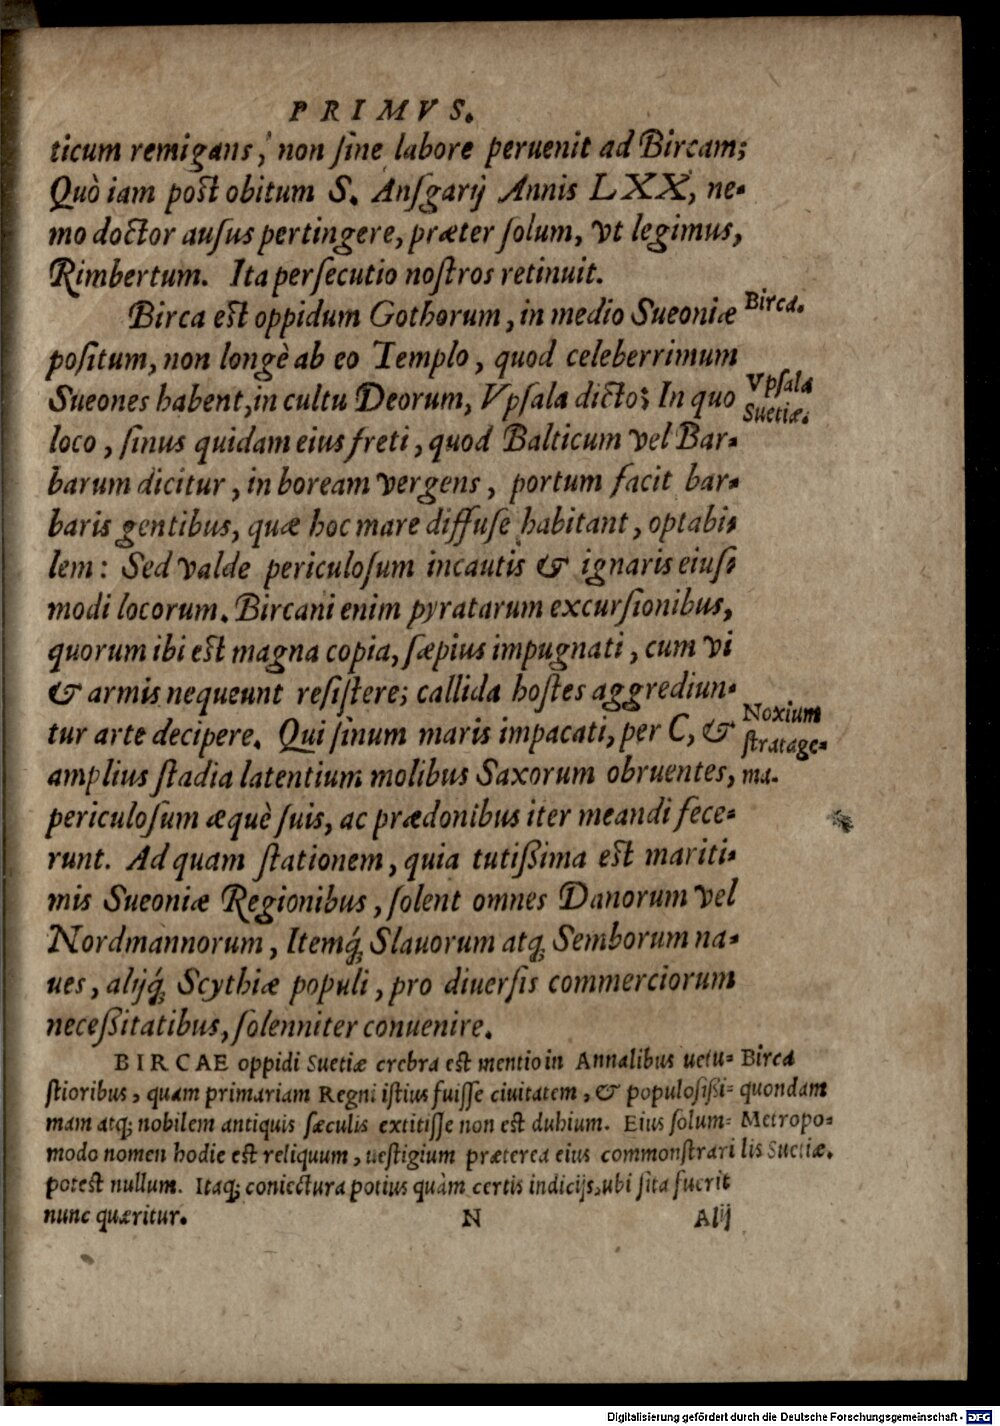 PRIMVS.
ticum remigans, non ſine labore peruenit ad Bircam;
Quò iam poſt obitum S. Anſgarij Annis LXX, ne-
mo doctor auſus pertingere, præter ſolum, vt legimus,
Rimbertum. Ita perſecutio noſtros retinuit.
Birca eſt oppidum Gothorum, in medio Sueoniæ
Birca.
poſitum, non longè ab eo Templo, quod celeberrimum
Sueones habent, in cultu Deorum, Vpſala dicto; In quo
Vpſala
Suetiæ.
loco, ſinus quidam eius freti, quod Balticum vel Bar-
barum dicitur, in boream vergens, portum facit bar-
baris gentibus, quæ hoc mare diffuſe habitant, optabi-
lem: Sed valde periculoſum incautis & ignaris eiuſ-
modi locorum. Bircani enim pyratarum excurſionibus,
quorum ibi eſt magna copia, ſæpius impugnati, cum vi
& armis nequeunt reſiſtere; callida hoſtes aggrediun-
tur arte decipere. Qui ſinum maris impacati, per C, &
Noxium
ſtratage-
ma.
amplius ſtadia latentium molibus Saxorum obruentes,
periculoſum æquè ſuis, ac prædonibus iter meandi fece-
runt. Ad quam ſtationem, quia tutißima eſt mariti-
mis Sueoniæ Regionibus, ſolent omnes Danorum vel
Nordmannorum, Itemq́; Slauorum atq; Semborum na-
ues, alijq́; Scythiæ populi, pro diuerſis commerciorum
neceßitatibus, ſolenniter conuenire.
BIRCAE oppidi Suetiæ crebra eſt mentio in Annalibus uetu-
ſtioribus, quam primariam Regni iſtius fuiſſe ciuitatem, & populoſißi-
mam atq; nobilem antiquis ſæculis extitiſſe non eſt dubium. Eius ſolum-
modo nomen hodie eſt reliquum, ueſtigium præterea eius commonſtrari
poteſt nullum. Itaq; coniectura potius quàm certis indicijs, ubi ſita fuerit
nunc quæritur.
Birca
quondam
Metropo-
lis Suetiæ.
N
Alij
Digitalisierung gefördert durch die Deutsche Forschungsgemeinschaft - DFG